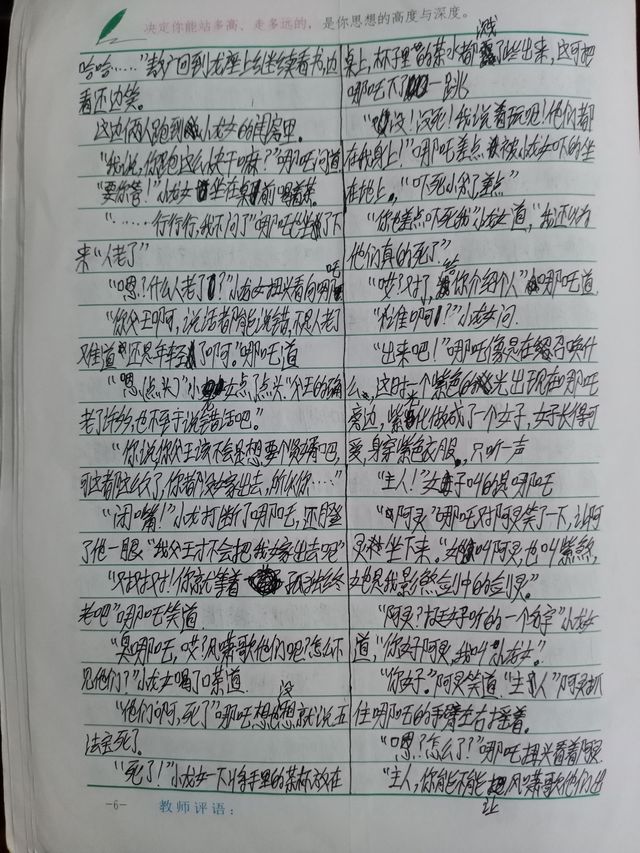 决定你能站多高、走多远的，是你思想的高度与深度。
哈哈……"敖广回到龙座上继续看书，边
看还边笑。
这边俩人跑到小龙女的闺房里。
"我说，你跑这么快干嘛？"哪吒问道
"要你管！"小龙女坐在桌前喝着茶。
"……行行行，我不问了"哪吒坐了下
来"人老了"
"嗯？什么人老了？"小龙女扭头看向哪吒
"你父王啊，说话都能说错，不是人老了
难道还是年轻了啊。"哪吒道
"嗯(点头)"小龙女点了点头"父王的确
老了许多，也不至于说错话吧。"
"你说，你父王该不会是想要个女婿吧，
可这都这么久了，你都没嫁出去，所以你……"
"闭嘴！"小龙打断了哪吒，还瞪
了他一眼，"我父王才不会把我嫁出去呢"
"对对对！你就等着孤独终
老吧"哪吒笑道
"臭哪吒，哎？风啸歌他们吧？怎么不
见他们？"小龙女喝了口茶道
"他们啊，死了"哪吒想也没想就说五
法宝死了。
"死了！"小龙女一下将手里的茶杯放在
桌上，杯子里的茶水都溅了些出来，这可把
哪吒下了一跳
"没！没死！我说着玩呢！他们都
在我身上！"哪吒差点被小龙女吓的坐
在地上。"吓死小爷差点"
"你也差点吓死我"小龙女道，"我还以为
他们真的死了"
"哎？对了，给你介绍个人"哪吒道
"谁啊？"小龙女问
"出来吧！"哪吒像是在召唤什
么，这时一个紫色的光出现在哪吒
旁边，紫光化做成了一个女子，女子长得可
爱，身穿紫色衣服，只听一声
"主人！"女子叫的是哪吒
"阿灵"哪吒对阿灵笑了一下，让阿
灵坐下来。"她叫阿灵，也叫紫煞，
她是我影煞剑中的剑灵。"
"阿灵？挺好听的一个名字"小龙女
道，"你好阿灵，我叫小龙女"
"你好。"阿灵笑道"主人"阿灵抓
住哪吒的手臂左右摇着。
"嗯？怎么了？"哪吒扭头看着阿灵
"主人，你能不能让风啸歌他们出
-6-
教师评语：